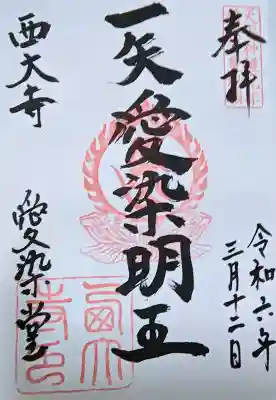 奉拝
令和六年
三月十二日
一矢愛染明王
西大寺
愛染堂